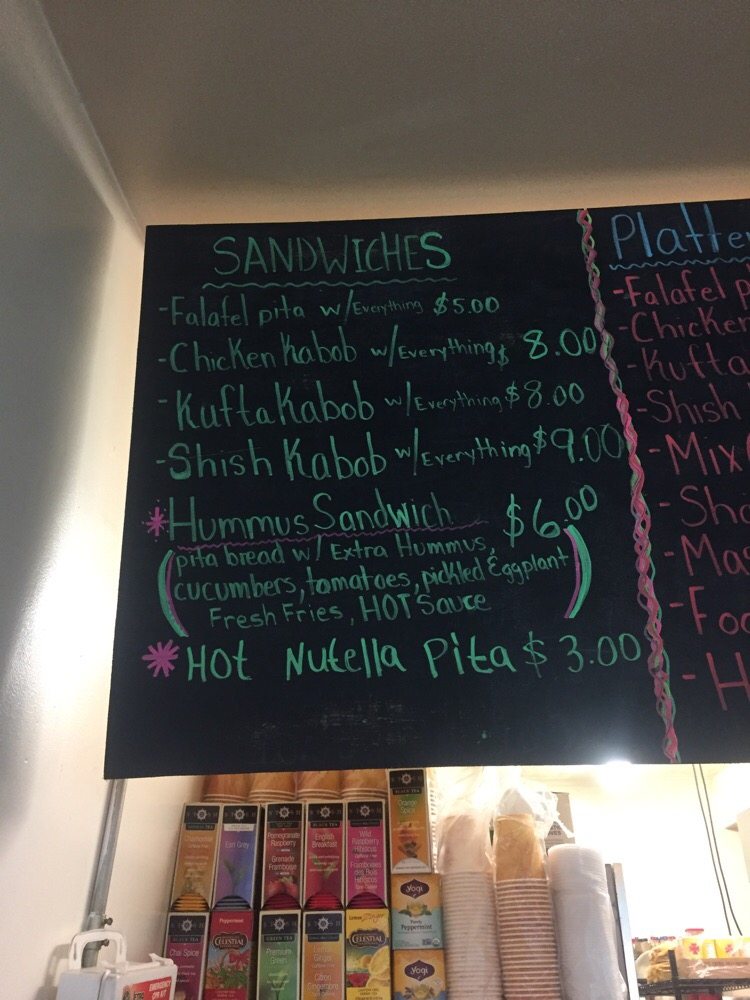 SANDWICHES
-Falafel pita w/Everything $5.00
-Chicken Kabob w/Everything $8.00
-Kufta Kabob w/Everything $8.00
-Shish Kabob w/Everything $9.00
*Hummus Sandwich $6.00
(pita bread w/ Extra Hummus,
cucumbers, tomatoes, pickled Eggplant
Fresh Fries, HOT Sauce)
*HOT Nutella Pita $3.00
Platte
-Falafel p
-Chicken
-Kufta
-Shish
-Mix
-Sh
-Ma
-Foo
-H
BLACK TEA
Earl Grey
Pomegranate
Raspberry
Grenade
Framboise
BLACK TEA
English
Breakfast
Wild
Raspberry
Hibiscus
Framboises
des Bois
Hibiscus
BLACK TEA
Orange
Spice
Chai Spice
Peppermint
CELESTIAL
GREEN TEA
Premium
Green
Ginger
Citron
Gingembre
Lemon Zinger
CELESTIAL
yogi
Purely
Peppermint
yogi
EMERGENCY
CPR KIT